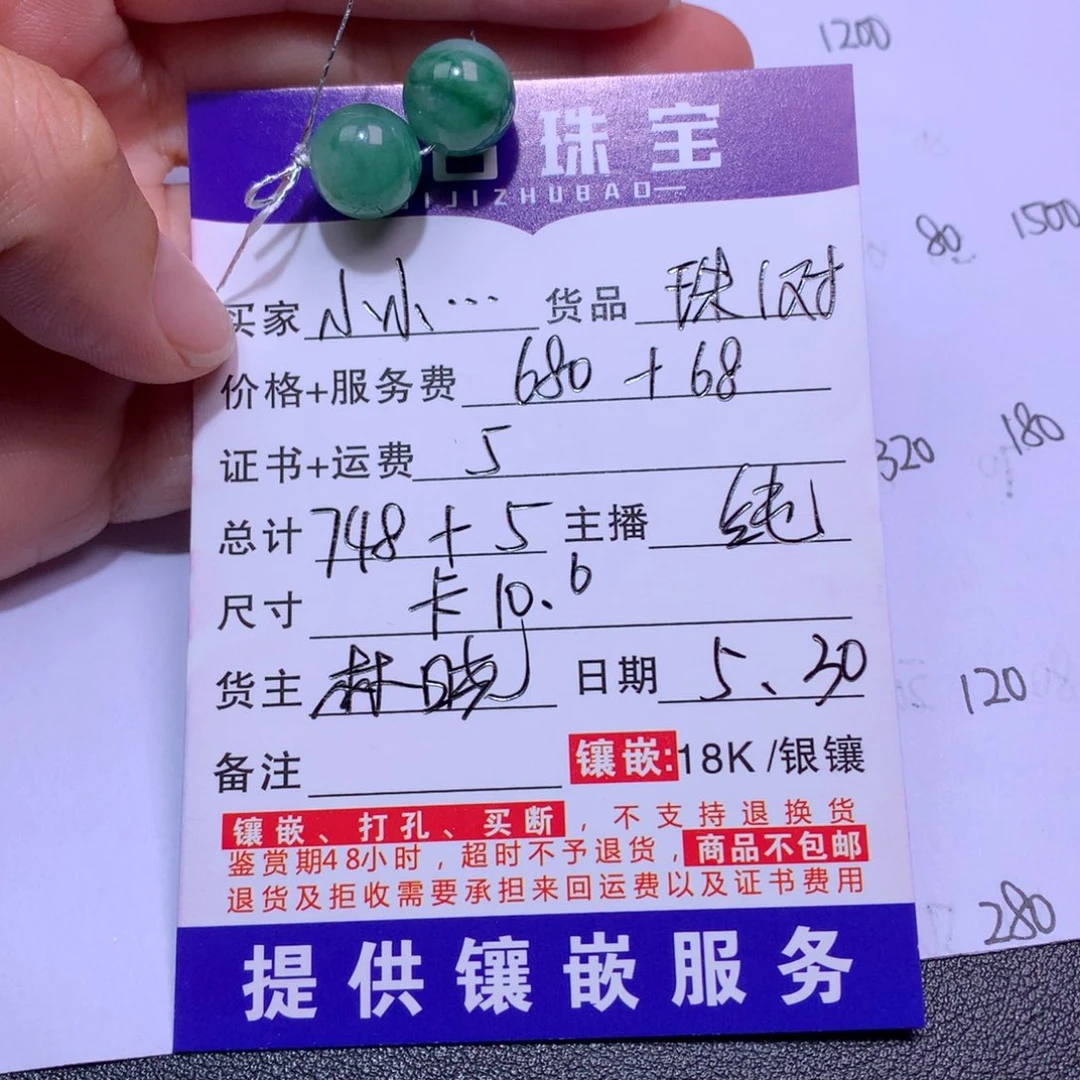 珠宝
IJIZHUBAO
买家 小小… 货品 珠1对
价格+服务费 680+68
证书+运费 5
总计 748+5 主播 纯
尺寸 卡10.6
货主 林晓 日期 5、30
备注 镶嵌:18K/银镶
镶嵌、打孔、买断,不支持退换货
鉴赏期48小时,超时不予退货,商品不包邮
退货及拒收需要承担来回运费以及证书费用
提供镶嵌服务
1200
80 1500
320 180
120
280